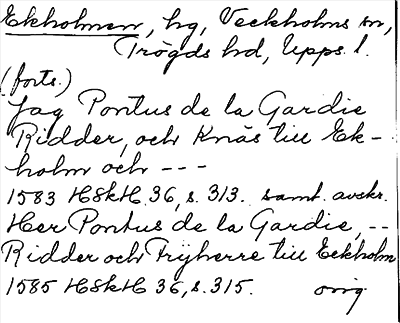 Ekholmen, hg, Veckholms sn,
Trögds hd, Upps. l.
(forts.)
Jag Pontus de la Gardie
Ridder, och Knäs till Ek-
holm och ---
1583 HSkH 36, s. 313. samt. avskr.
Her Pontus de la Gardie, --
Ridder och Frijherre till Eckholm
1585 HSkH 36, s. 315. orig.